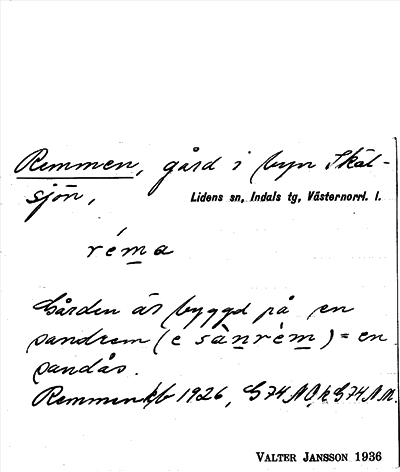 Remmen, gård i byn Skäl-
sjön, Lidens sn, Indals tg, Västernorrl. l.
réma
Gården är byggd på en
sandrem (e sànrèm) = en
sandås.
Remmen kb 1926, G 74 N Ö, k G 74 N Ö.
VALTER JANSSON 1936